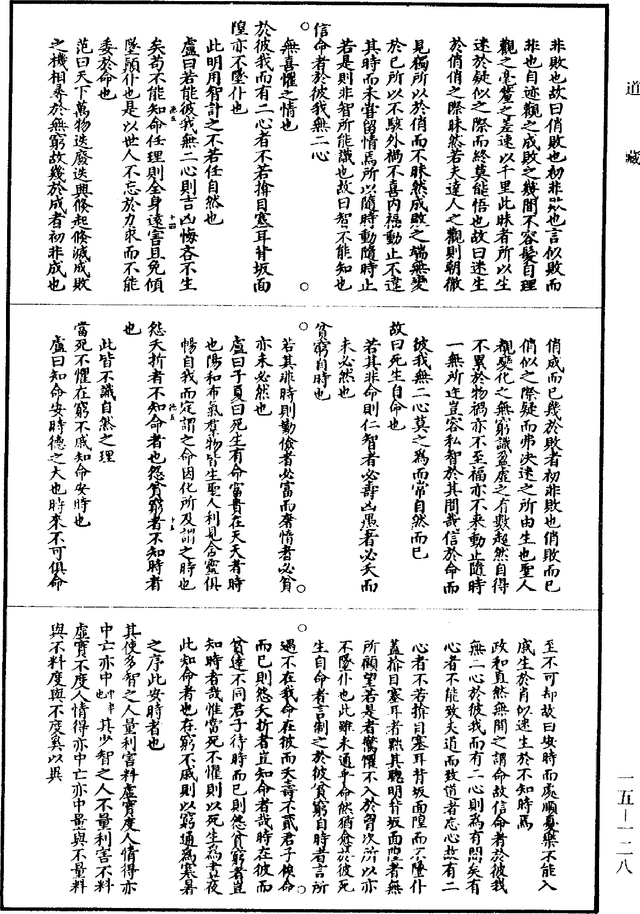 道藏
非敗也故曰俏敗也初非敗也言似敗而
非也自迹觀之成敗之幾間不容髮自理
觀之毫釐之差速以千里此昧者所以生
迷於疑似之際而終莫能悟也故曰迷生
於俏俏之際昧然若夫達人之觀則朝徹
見獨所以於俏而不昧然成敗之端無變
於己所以不駭外禍不喜內福動止不違
其時而未嘗留情焉所以隨時動隨時止
若是則非智所能識也故曰智不能知也
信命者於彼我無二心
無喜懼之情也
於彼我而有二心者不若揜目塞耳背坂面
隍亦不墜仆也
此明用智計之不若任自然也
盧曰若能彼我無二心則吉凶悔吝不生
矣苟不能知命任理則全身遠害且免傾
墜顛仆也是以世人不忘於力求而不能
委於命也
范曰天下萬物迭廢迭興倏起倏滅成敗
之機相尋於無窮故幾於成者初非成也
俏成而已幾於敗者初非敗也俏敗而已
俏似之際疑而弗決迷之所由生也聖人
觀變化之無窮識盈虛之有數超然自得
不累於物禍亦不至福亦不來動止隨時
一無所迕豈容私智於其間哉信於命而
彼我無二心莫之為而常自然而已
故曰死生自命也
若其非命則仁智者必壽凶愚者必夭而
未必然也
貧窮自時也
若其非時則勤儉者必富而奢惰者必貧
亦未必然也
盧曰子夏曰死生有命富貴在天天者時
也陽和布氣羣物皆生聖人利見含靈俱
暢自我而定謂之命因化所及謂之時也
怨夭折者不知命者也怨貧窮者不知時者
也
此皆不識自然之理
當死不懼在窮不戚知命安時也
盧曰知命安時德之大也時來不可俱命
至不可却故曰安時而處順憂樂不能入
戚生於肖似迷生於不知時焉
政和真然無間之謂命故信命者於彼我
無二心於彼我而有二心則為有間矣有
心者不能致夫道而致道者忘心故有二
心者不若揜目塞耳背坂面隍而不墜仆
蓋揜目塞耳者黜其聰明背坂面隍者無
所顧望若是者驚懼不入於胷次所以亦
不墜仆也此雖未通乎命然猶愈於彼死
生自命者言制之於彼貧窮自時者言所
遇不在我命在彼而夭壽不貳君子俟命
而已則怨夭折者豈知命者哉時在彼而
貧達不同君子待時而已則怨貧窮者豈
知時者哉惟當死不懼則以死生為晝夜
此知命者也在窮不戚則以窮通為寒暑
之序此安時者也
其使多智之人量利害料虛實度人情得亦
中亡亦中其少智之人不量利害不料
虛實不度人情得亦中亡亦中量與不量料
與不料度與不度奚以異
一五—一二八